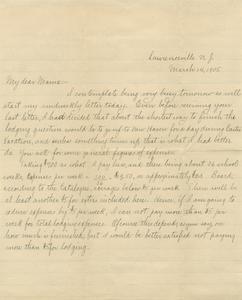 Lawrenceville N.J.
March 14, 1905
My dear Mama-
I contemplate being very busy tomorrow so will
start my midweekly letter today. Even before receiving your
last letter, I had decided that about the shortest way to finish the
lodging question would be to go up to New Haven for a day during Easter
vacation, and unless something turns up, that is what I had better
do. You ask for some general figures of expenses.
Taking $ as what I pay how, and there being about 36 school
weeks, expenses per week = = $ , or approximately $ . Board
according to the Catalogue, averages below $ per week. There will be
at least another $ for extras included here. Hence, if I am going to
reduce expenses by $ per week, I can not pay more than $ per
week for total lodging expense. Of course this depends again on
how much is furnished, but I would be better satisfied not paying
more than $ for lodging.